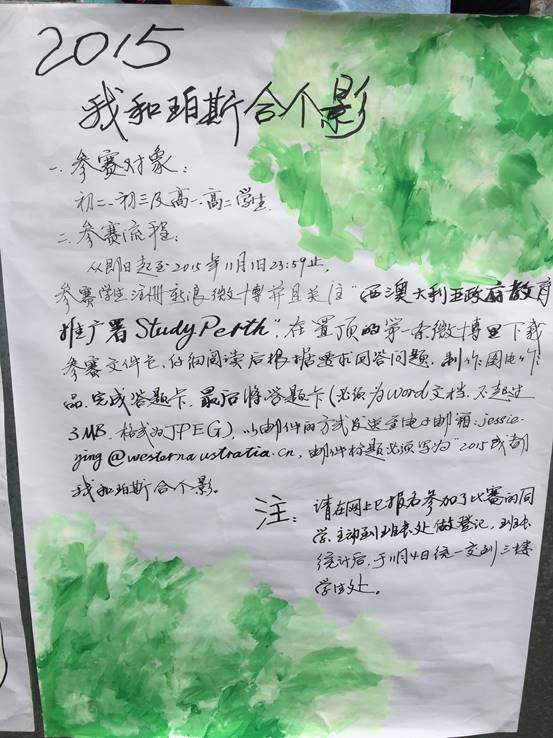 2015
我和珀斯合个影
一.参赛对象:
初二.初三及高一.高二学生.
二.参赛流程:
从即日起至2015年11月1日23:59止,
参赛学生注册新浪微博并且关注“西澳大利亚政府教育
推广署StudyPerth”,在置顶的第一条微博里下载
参赛文件包,仔细阅读后根据要求回答问题,制作图电作
品.完成答题卡.最后将答题卡(必须为word文档.不超过
3MB.格式为JPEG),以邮件的方式发送至电子邮箱:jessie.
ying@westernaustratia.cn,邮件标题必须写为“2015成都
我和珀斯合个影.
注:请在网上已报名参加了比赛的同
学,主动到班长处做登记,班长
统计后,于11月4日统一交到三楼
学生处。